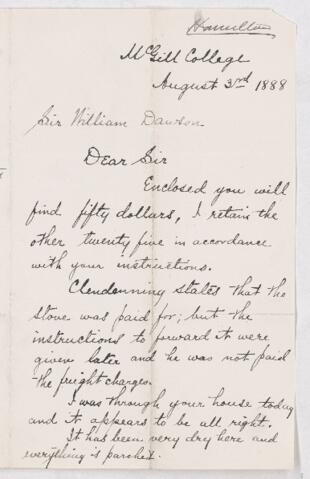 Hamilton
McGill College
August 3rd 1888
Sir William Dawson
Dear Sir
Enclosed you will
find fifty dollars, I retain the
other twenty five in accordance
with your instructions.
Clendonning states that the
stove was paid for; but the
instructions to forward it were
given late and he was not paid
the frightcharges.
I was through your house today
and it appears to be all right.
It has been very dry here and
everything is parched.